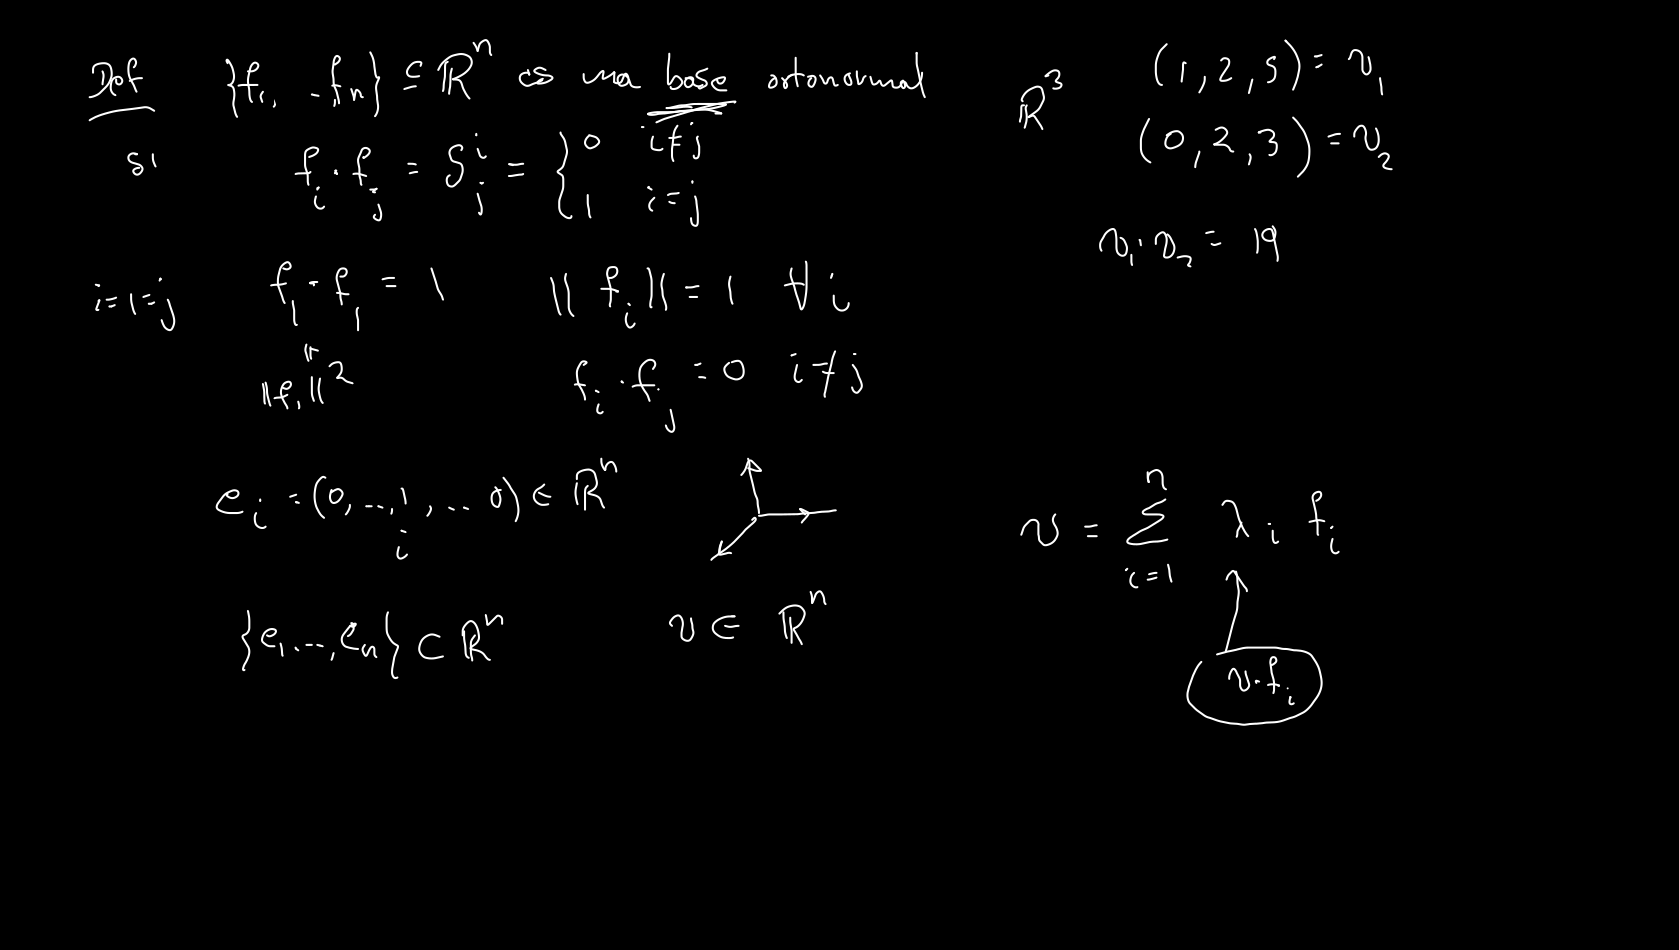 Def {f₁, .. fₙ} ⊆ ℝⁿ es una base ortonormal
si fᵢ · fⱼ = δⁱⱼ = { 0 i≠j
1 i=j
i=1=j f₁ · f₁ = 1 || fᵢ || = 1 ∀ i
|| f₁ ||² fᵢ · fⱼ = 0 i≠j
eᵢ = (0, .., 1, .. 0) ∈ ℝⁿ
i
{e₁, ..., eₙ} ⊂ ℝⁿ v ∈ ℝⁿ
ℝ³ (1, 2, 5) = v₁
(0, 2, 3) = v₂
v₁ · v₂ = 19
v = ∑ⁿᵢ₌₁ λᵢ fᵢ
v · fᵢ